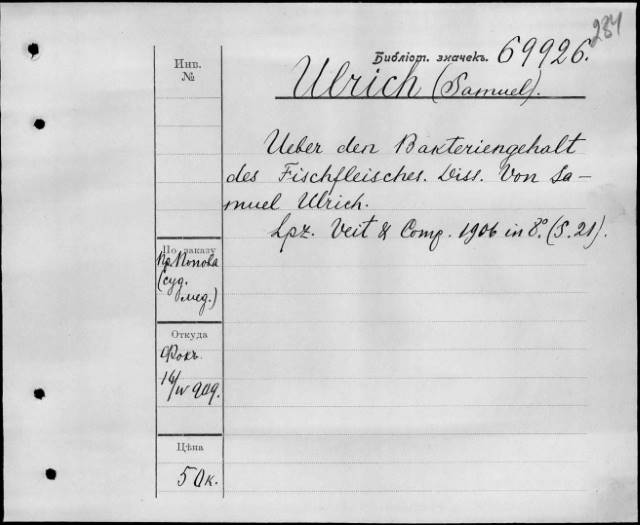 284
Библіот. значекъ. 69926.
Инв.
№
Ulrich (Samuel).
Ueber den Bakteriengehalt
des Fischfleisches. Diss. Von Sa-
muel Ulrich.
Lpz. Veit & Comp. 1906 in 8°. (S. 21).
По заказу
Пр. Попова
(суд.
мед.)
Откуда
Фокъ.
16/IV 909.
Цѣна
50к.